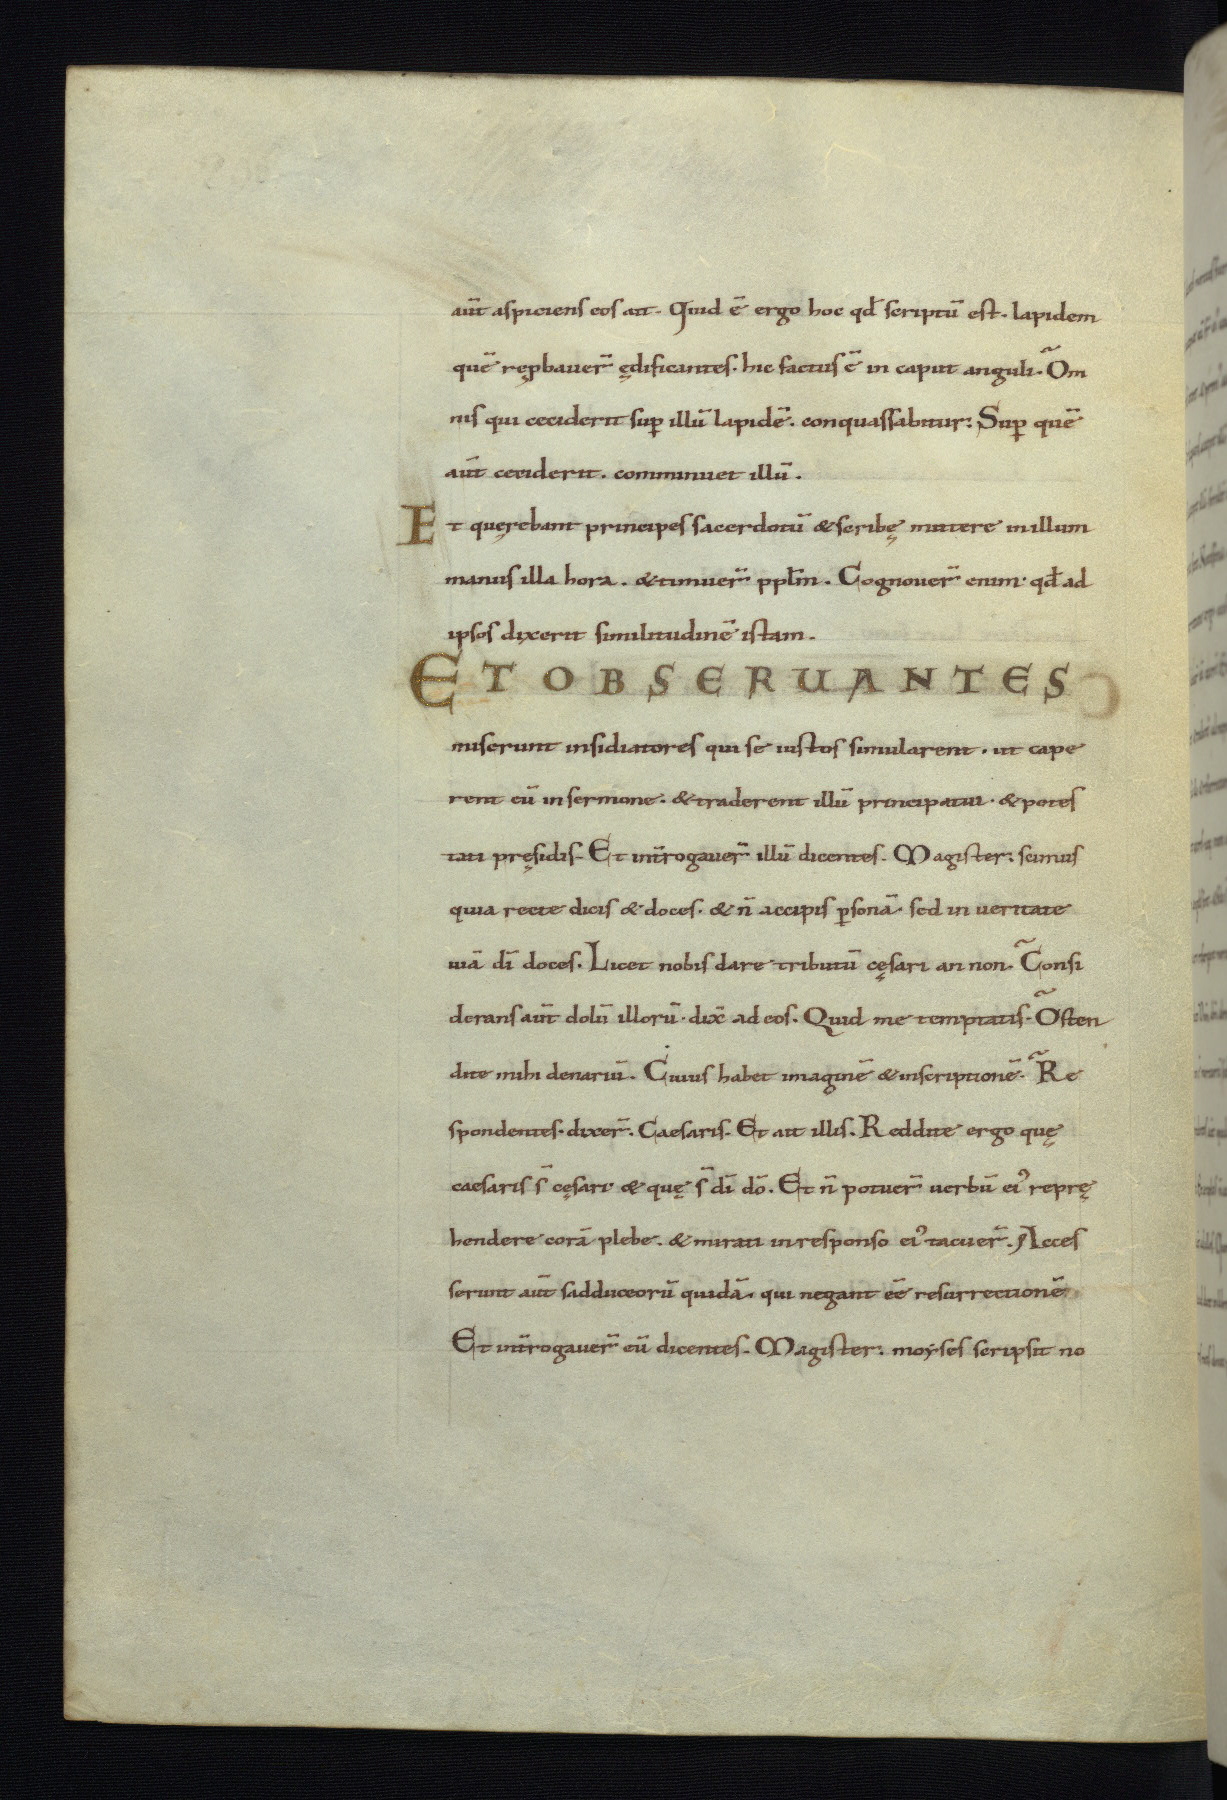 aūt aspiciens eos ait. Quid ē ergo hoc qđ scriptū est. lapidem
quē reꝓbauer̄ ędificantes. hic factus ē in caput anguli. Om
nis qui ceciderit suꝑ illū lapidē. conquassabitur; Suꝑ quē
aūt ceciderit. comminuet illū.
Et quęrebant principes sacerdotū & scribę mittere in illum
manus illa hora. & timuer̄ ppłm. Cognouer̄ enim qđ ad
ipsos dixerit similitudinē istam.
ET OBSERUANTES
miserunt insidiatores qui se iustos simularent. ut cape
rent eū in sermone. & traderent illū principatui. & potes
tati pręsidis. Et int̄rogauer̄ illū dicentes. Magister; scimus
quia recte dicis & doces. & n̄ accipis ꝑsonā. sed in ueritate
uiā dī doces. Licet nobis dare tributū cęsari an non. Consi
derans aūt dolū illorū. dix̄ ad eos. Quid me temptatis. Osten
dite mihi denariū. Cuius habet imaginē & inscriptionē. Re
spondentes. dixer̄. Caesaris. Et ait illis. Reddite ergo quę
caesaris s̄ cęsari & quę s̄ dī dō. Et n̄ potuer̄ uerbū eiꝰ reprę
hendere corā plebe. & mirati in responso eiꝰ tacuer̄. Acces
serunt aūt sadduceorū quidā. qui negant eē resurrectionē
Et int̄rogauer̄ eū dicentes. Magister; moyses scripsit no